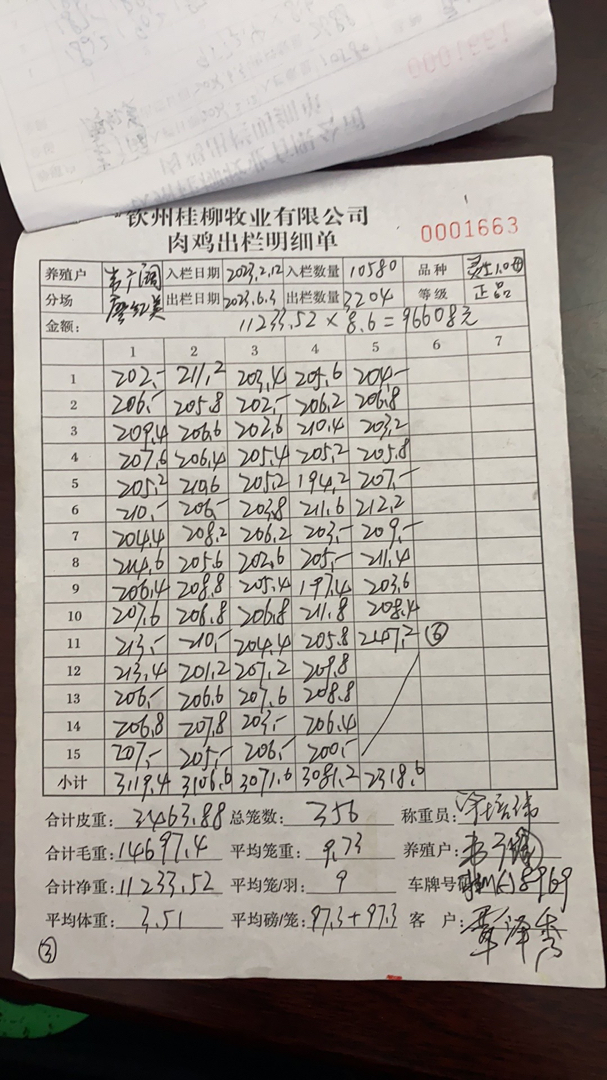 0001661
钦州桂柳牧业有限公司
肉鸡出栏明细单
0001663
养殖户 韦广润 入栏日期 2023.2.12 入栏数量 10580 品种
分场 廖红英 出栏日期 2023.6.3 出栏数量 3204 等级 正品
金额: 11233.52 × 8.6 = 96608元
1 2 3 4 5 6 7
1 202.- 211.2 203.4 205.6 204.-
2 206.- 205.8 202.- 206.2 206.8
3 209.4 206.6 202.6 210.4 203.2
4 207.6 206.4 205.4 205.2 205.8
5 205.2 210.6 205.2 194.2 207.-
6 210.- 206.- 203.8 211.6 212.2
7 204.4 208.2 206.2 203.- 209.-
8 214.6 205.6 202.6 205.- 211.4
9 206.4 208.8 205.4 197.4 203.6
10 207.6 206.8 206.8 211.8 208.4
11 213.- 210.- 204.4 205.8 247.2 ⑥
12 213.4 201.2 207.2 209.8
13 206.- 206.6 207.6 208.8
14 206.8 207.8 203.- 206.4
15 207.- 205.- 206.- 200.-
小计 3119.4 3106.6 3071.6 3081.2 2318.6
合计皮重: 3463.88 总笼数: 356 称重员:
合计毛重: 14697.4 平均笼重: 9.73 养殖户:
合计净重: 11233.52 平均笼/羽: 9 车牌号码
平均体重: 3.51 平均磅/笼: 97.3+97.3 客 户:
③